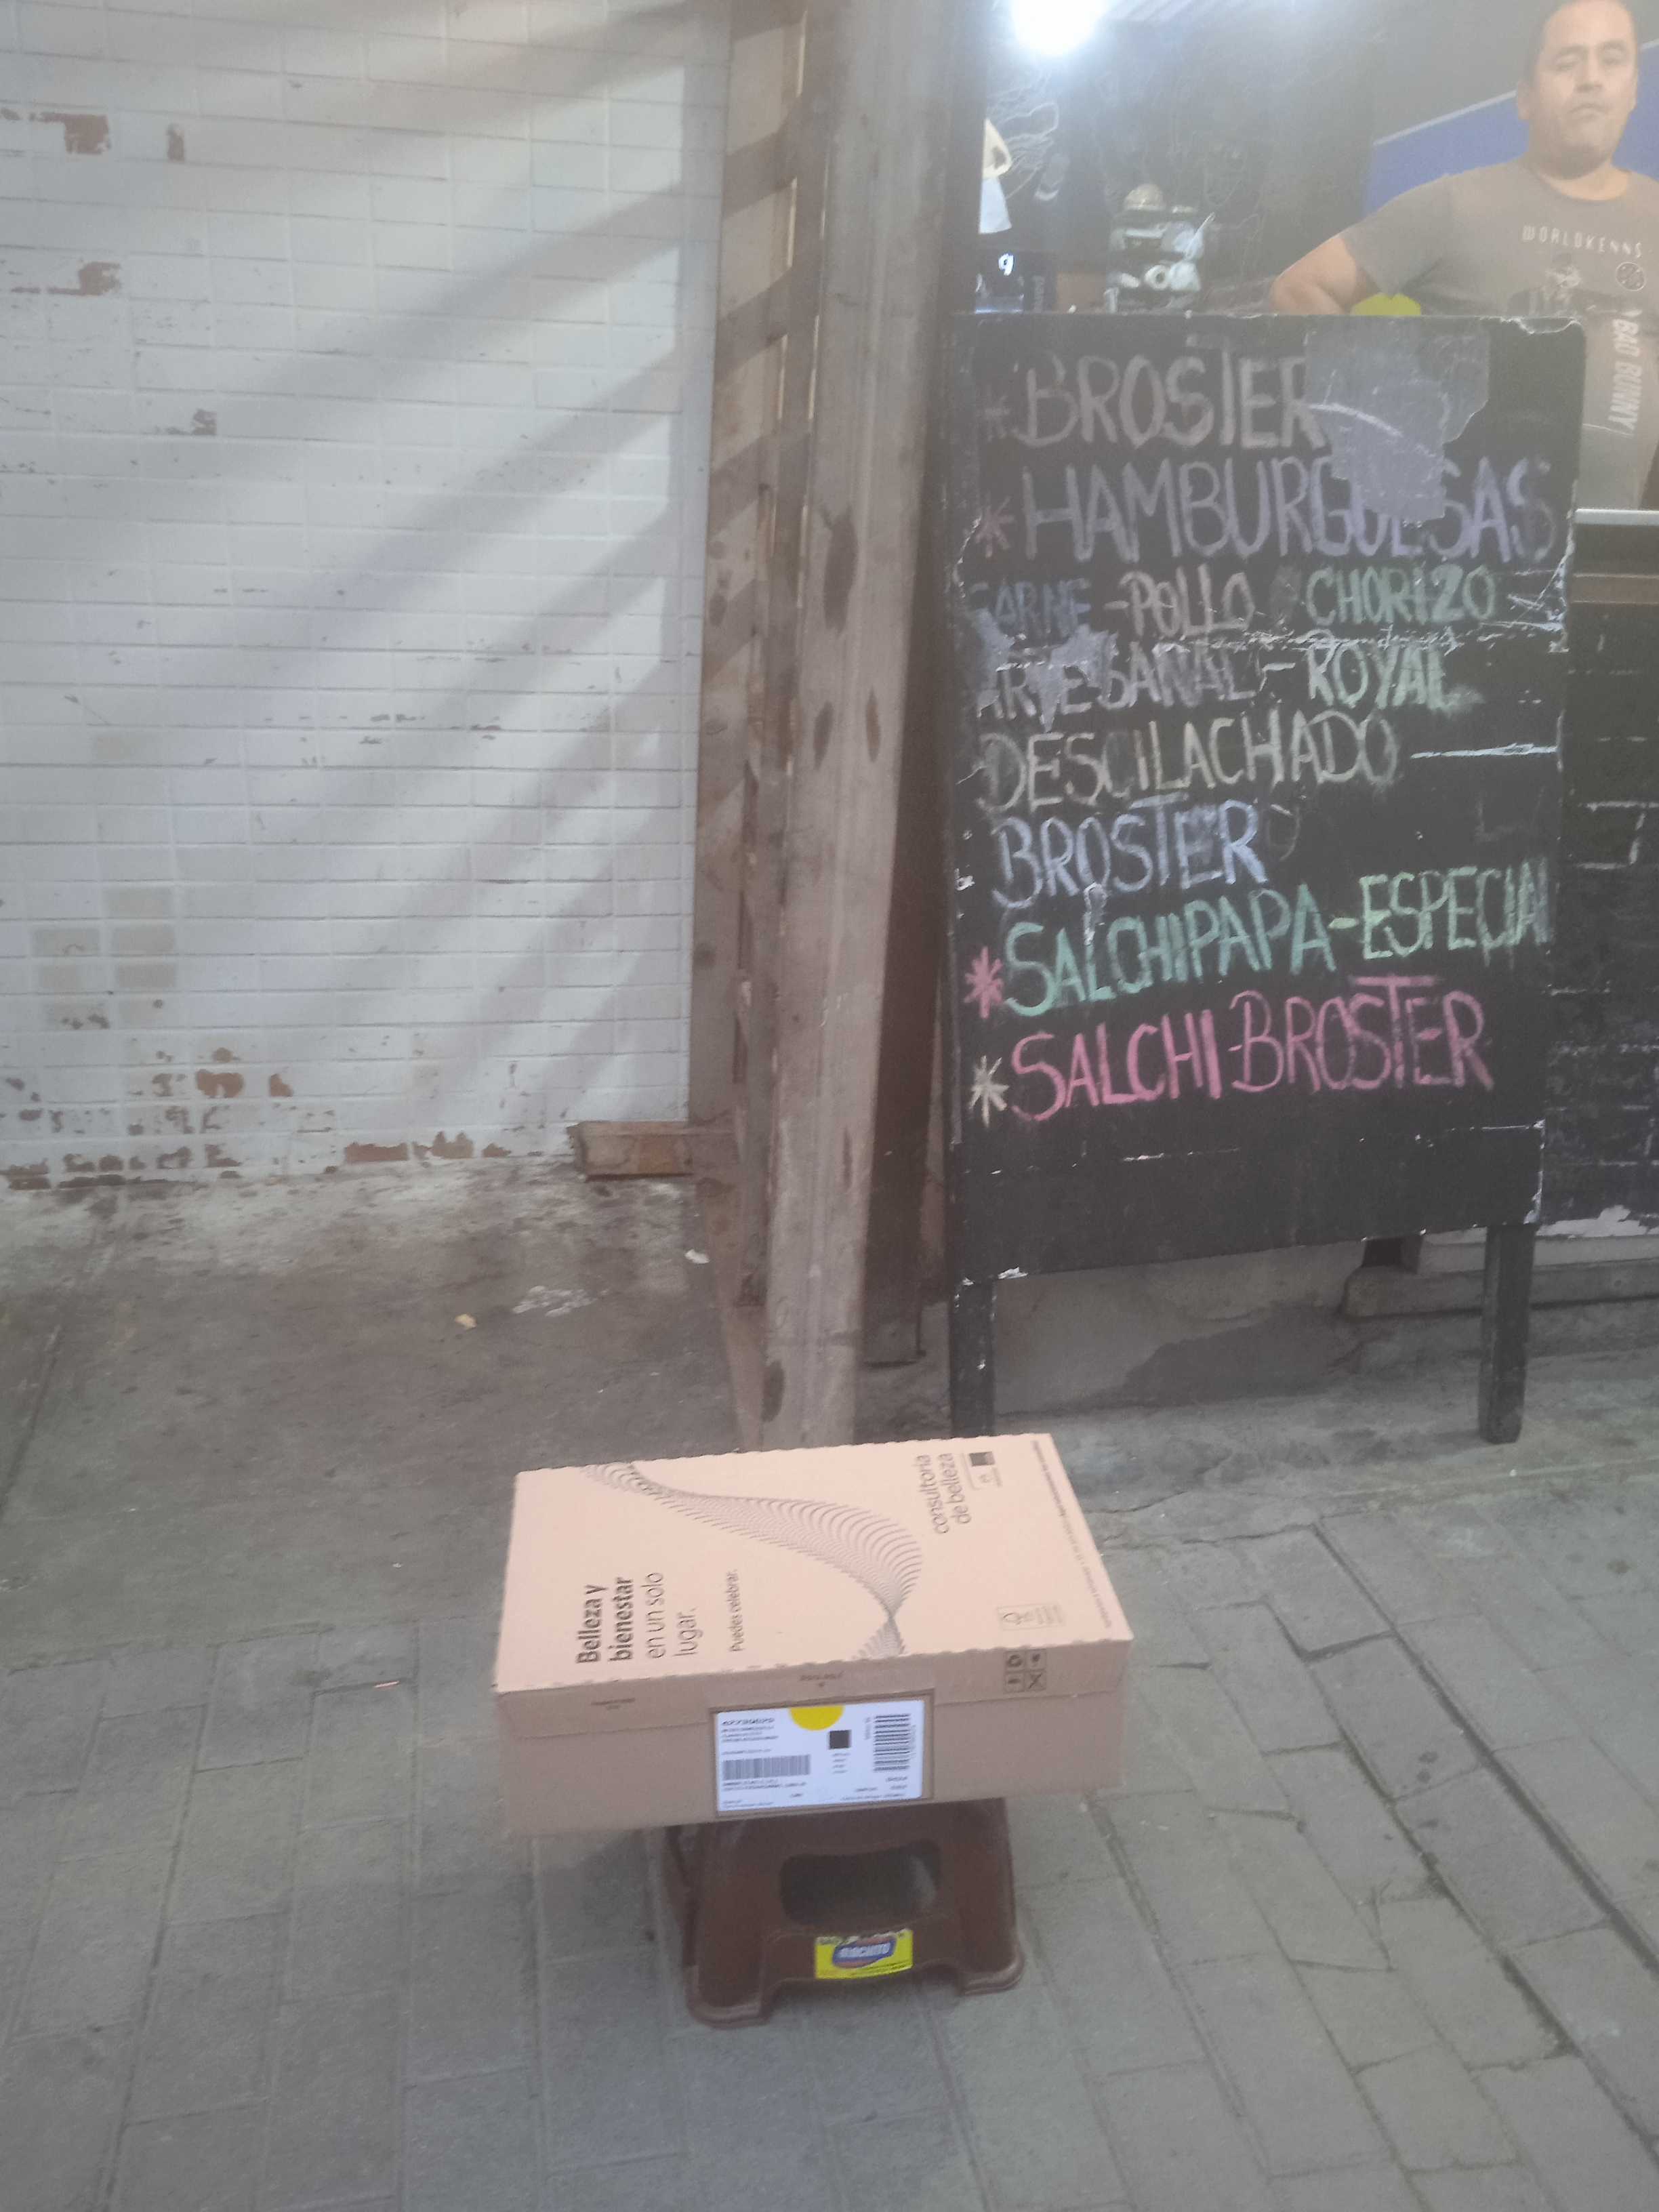 WORLDKENNS
BAD BUNNY
* BROSTER
* HAMBURGUESAS
CARNE - POLLO CHORIZO
ARTESANAL - ROYAL
DESCILACHADO
BROSTER
* SALCHIPAPA - ESPECIAL
* SALCHI - BROSTER
Belleza y
bienestar
en un solo
lugar.
Puedes celebrar.
consultoría
de belleza